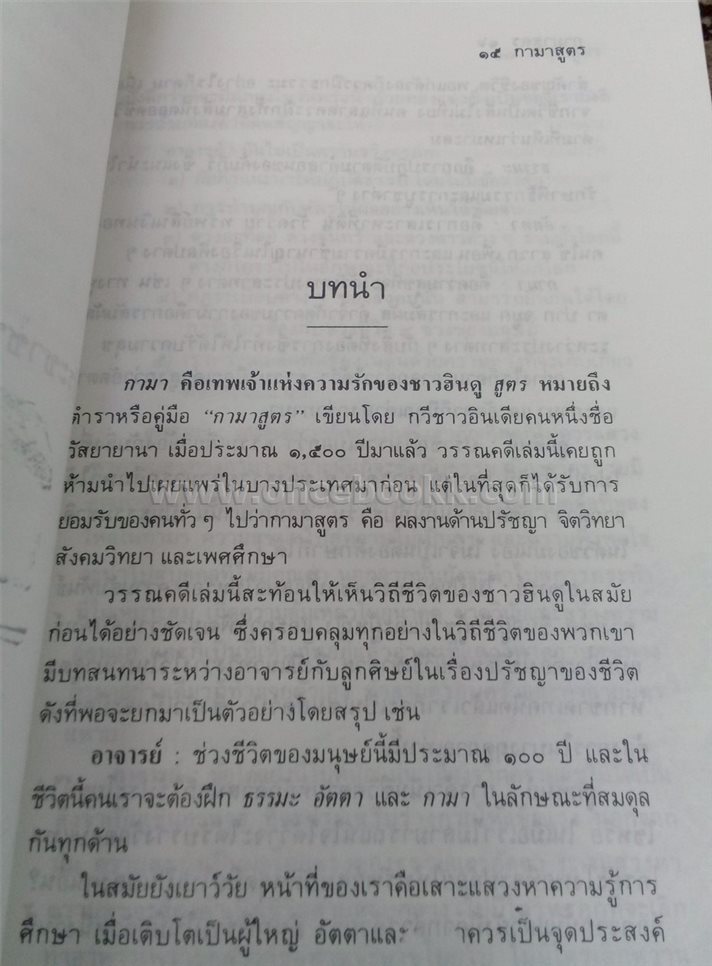 ๑๕ กามาสูตร
บทนำ
กามา คือเทพเจ้าแห่งความรักของชาวฮินดู สูตร หมายถึง
ตำราหรือคู่มือ “กามาสูตร” เขียนโดย กวีชาวอินเดียคนหนึ่งชื่อ
วัสยายานา เมื่อประมาณ ๑,๕๐๐ ปีมาแล้ว วรรณคดีเล่มนี้เคยถูก
ห้ามนำไปเผยแพร่ในบางประเทศมาก่อน แต่ในที่สุดก็ได้รับการ
ยอมรับของคนทั่ว ๆ ไปว่ากามาสูตร คือ ผลงานด้านปรัชญา จิตวิทยา
สังคมวิทยา และเพศศึกษา
วรรณคดีเล่มนี้สะท้อนให้เห็นวิถีชีวิตของชาวฮินดูในสมัย
ก่อนได้อย่างชัดเจน ซึ่งครอบคลุมทุกอย่างในวิถีชีวิตของพวกเขา
มีบทสนทนาระหว่างอาจารย์กับลูกศิษย์ในเรื่องปรัชญาของชีวิต
ดังที่พอจะยกมาเป็นตัวอย่างโดยสรุป เช่น
อาจารย์ : ช่วงชีวิตของมนุษย์นี้มีประมาณ ๑๐๐ ปี และใน
ชีวิตนี้คนเราจะต้องฝึก ธรรมะ อัตตา และ กามา ในลักษณะที่สมดุล
กันทุกด้าน
ในสมัยยังเยาว์วัย หน้าที่ของเราคือเสาะแสวงหาความรู้การ
ศึกษา เมื่อเติบโตเป็นผู้ใหญ่ อัตตาและ าควรเป็นจุดประสงค์